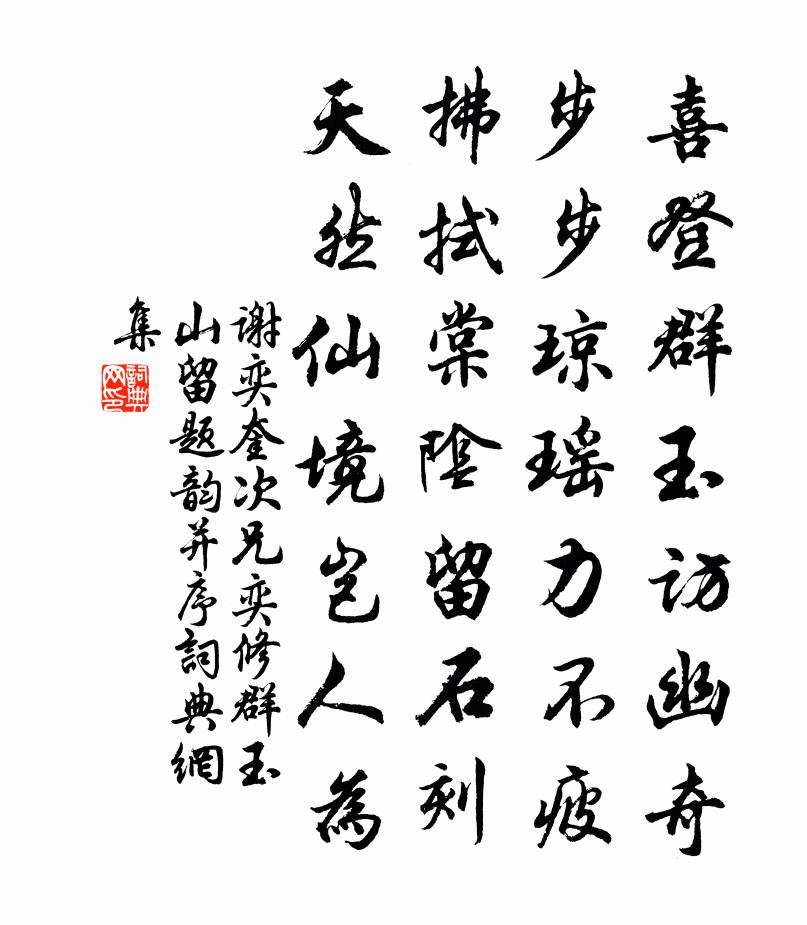 喜登群玉訪幽奇
步步琼瑶力不疲
拂拭棠陰留石刻
天然仙境豈人為
謝奕奎次兄奕修群玉
山留题韵并序詞典網
集
詞典
网印